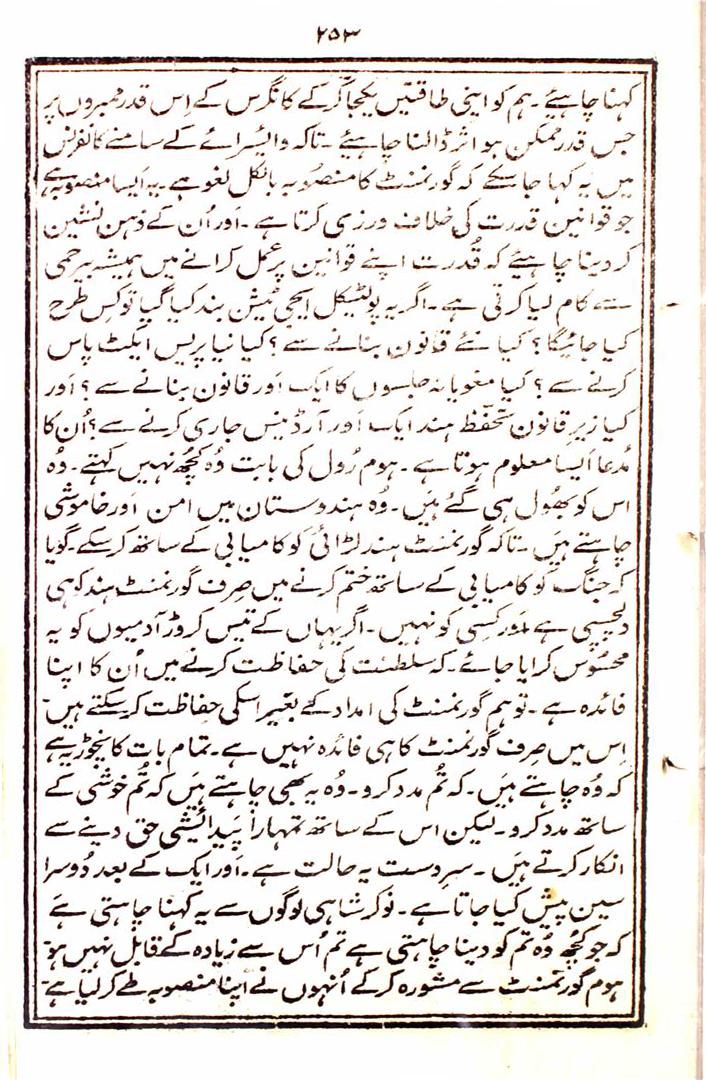 ۲۵۳
کہنا چاہیئے۔ ہم کو اپنی طاقتیں یکجا کرکے کانگرس کے اِس قدر ممبروں پر
جس قدر ممکن ہو اثر ڈالنا چاہیئے۔ تاکہ وائسرائے کے سامنے کانفرنس
میں یہ کہا جا سکے کہ گورنمنٹ کا منصوبہ بالکل لغو ہے۔ یہ ایسا منصوبہ ہے
جو قوانین قدرت کی خلاف ورزی کرتا ہے۔ اور اُن کے ذہن نشین
کر دینا چاہیئے کہ قُدرت اپنے قوانین پر عمل کرانے میں ہمیشہ بیرحمی
سے کام لیا کرتی ہے۔ اگر یہ پولٹیکل ایجی ٹیشن بند کیا گیا تو کس طرح
کیا جائیگا؟ کیا نئے قانون بنانے سے؟ کیا نیا پریس ایکٹ پاس
کرنے سے؟ کیا مغویانہ جلسوں کا ایک اور قانون بنانے سے؟ اور
کیا زیر قانون تحفظ ہند ایک اور آرڈیننس جاری کرنے سے؟ اُن کا
مُدعا ایسا معلوم ہوتا ہے۔ ہوم رُول کی بابت وُہ کچھ نہیں کہتے۔ وُہ
اس کو بھُول ہی گئے ہیں۔ وُہ ہندوستان میں امن اور خاموشی
چاہتے ہیں۔ تاکہ گورنمنٹ ہند لڑائی کو کامیابی کے ساتھ کر سکے۔ گویا
کہ جنگ کو کامیابی کے ساتھ ختم کرنے میں صِرف گورنمنٹ ہند کو ہی
دلچسپی ہے اور کسی کو نہیں۔ اگر یہاں کے تیس کروڑ آدمیوں کو یہ
محسُوس کرایا جائے۔ کہ سلطنت کی حفاظت کرنے میں اُن کا اپنا
فائدہ ہے۔ تو ہم گورنمنٹ کی امداد کے بغیر اسکی حفاظت کر سکتے ہیں۔
اِس میں صِرف گورنمنٹ کا ہی فائدہ نہیں ہے۔ تمام بات کا نچوڑ یہ ہے
کہ وُہ چاہتے ہیں۔ کہ تُم مدد کرو۔ وُہ یہ بھی چاہتے ہیں کہ تُم خوشی کے
ساتھ مدد کرو۔ لیکن اس کے ساتھ تمہارا پیدائیشی حق دینے سے
انکار کرتے ہیں۔ سرِ دست یہ حالت ہے۔ اور ایک کے بعد دُوسرا
سین پیش کیا جاتا ہے۔ نوکر شاہی لوگوں سے یہ کہنا چاہتی ہے
کہ جو کچھ وُہ تم کو دینا چاہتی ہے تم اُس سے زیادہ کے قابل نہیں ہو۔
ہوم گورنمنٹ سے مشورہ کرکے اُنہوں نے اپنا منصوبہ طے کر لیا ہے۔